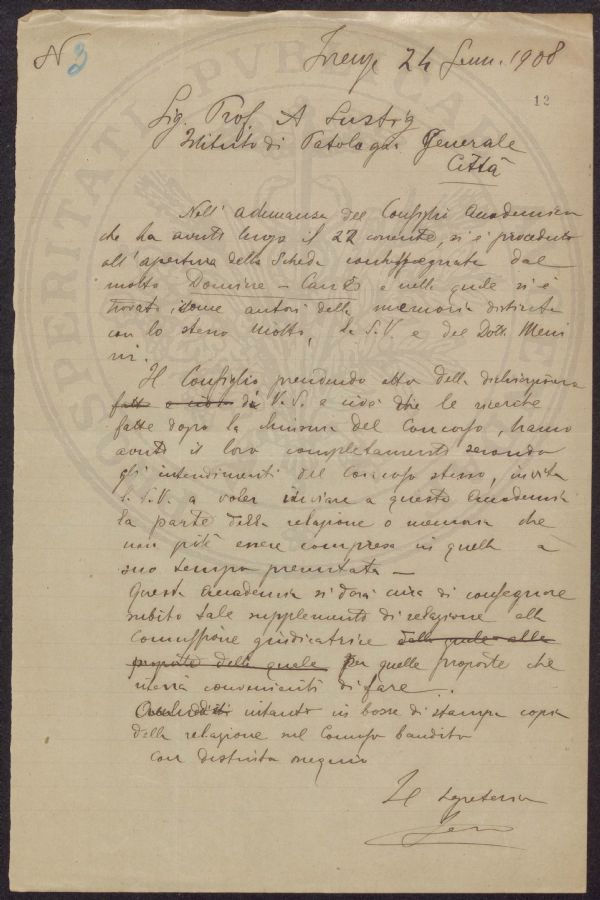 N 3
Firenze 24 Genn. 1908
12
Sig. Prof. A Lustig
Istituto di Patologia Generale
Città
Nell' adunanza del Consiglio Accademico
che ha avuto luogo il 22 corrente, si è proceduto
all'apertura della Scheda contrassegnata dal
motto Domine - Canes e nella quale si è
trovato come autori della memoria distinta
con lo stesso motto, la S.V. e del Dott.
Il Consiglio prendendo atto della dichiarazione
fatt di V.S. e cioè che le ricerche
fatte dopo la chiusura del Concorso, hanno
avuto il loro completamento secondo
gli intendimenti del Concorso stesso, invita
la S.V. a voler inviare a questa Accademia
la parte della relazione o memoria che
non potè essere compresa in quella a
suo tempo presentata -
Questa Accademia si darà cura di consegnare
subito tale supplemento di relazione alla
Commissione giudicatrice dalla quale alle
proposte della quale per quelle proposte che
crederà convenienti di fare.
intanto in bozze di stampa copia
della relazione sul Concorso bandito
con distinto ossequio
Il Segretario